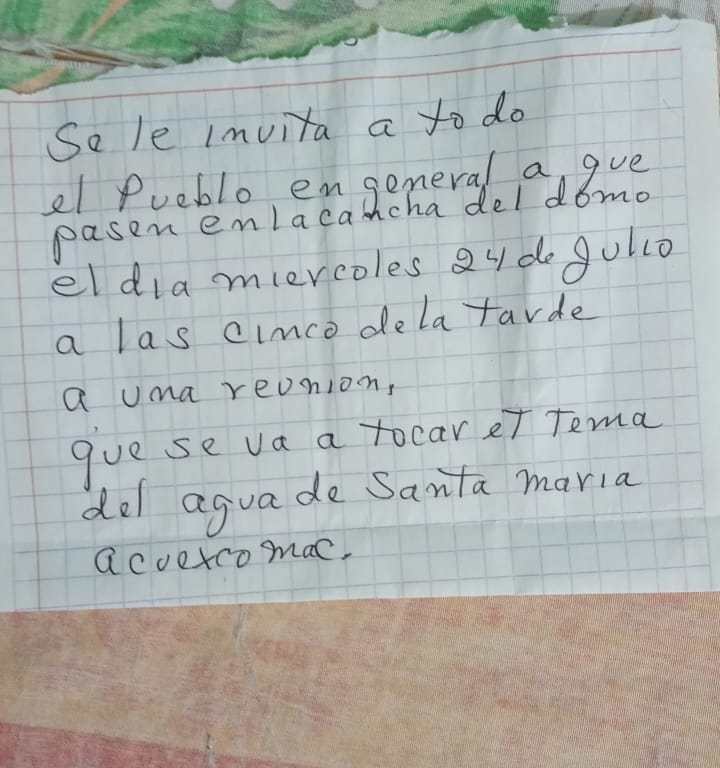 Se le invita a todo
el Pueblo en general a que
pasen en la cancha del domo
el dia miercoles 24 de Julio
a las cinco de la tarde
a una reunion,
que se va a tocar el Tema
del agua de Santa maria
acuexcomac.